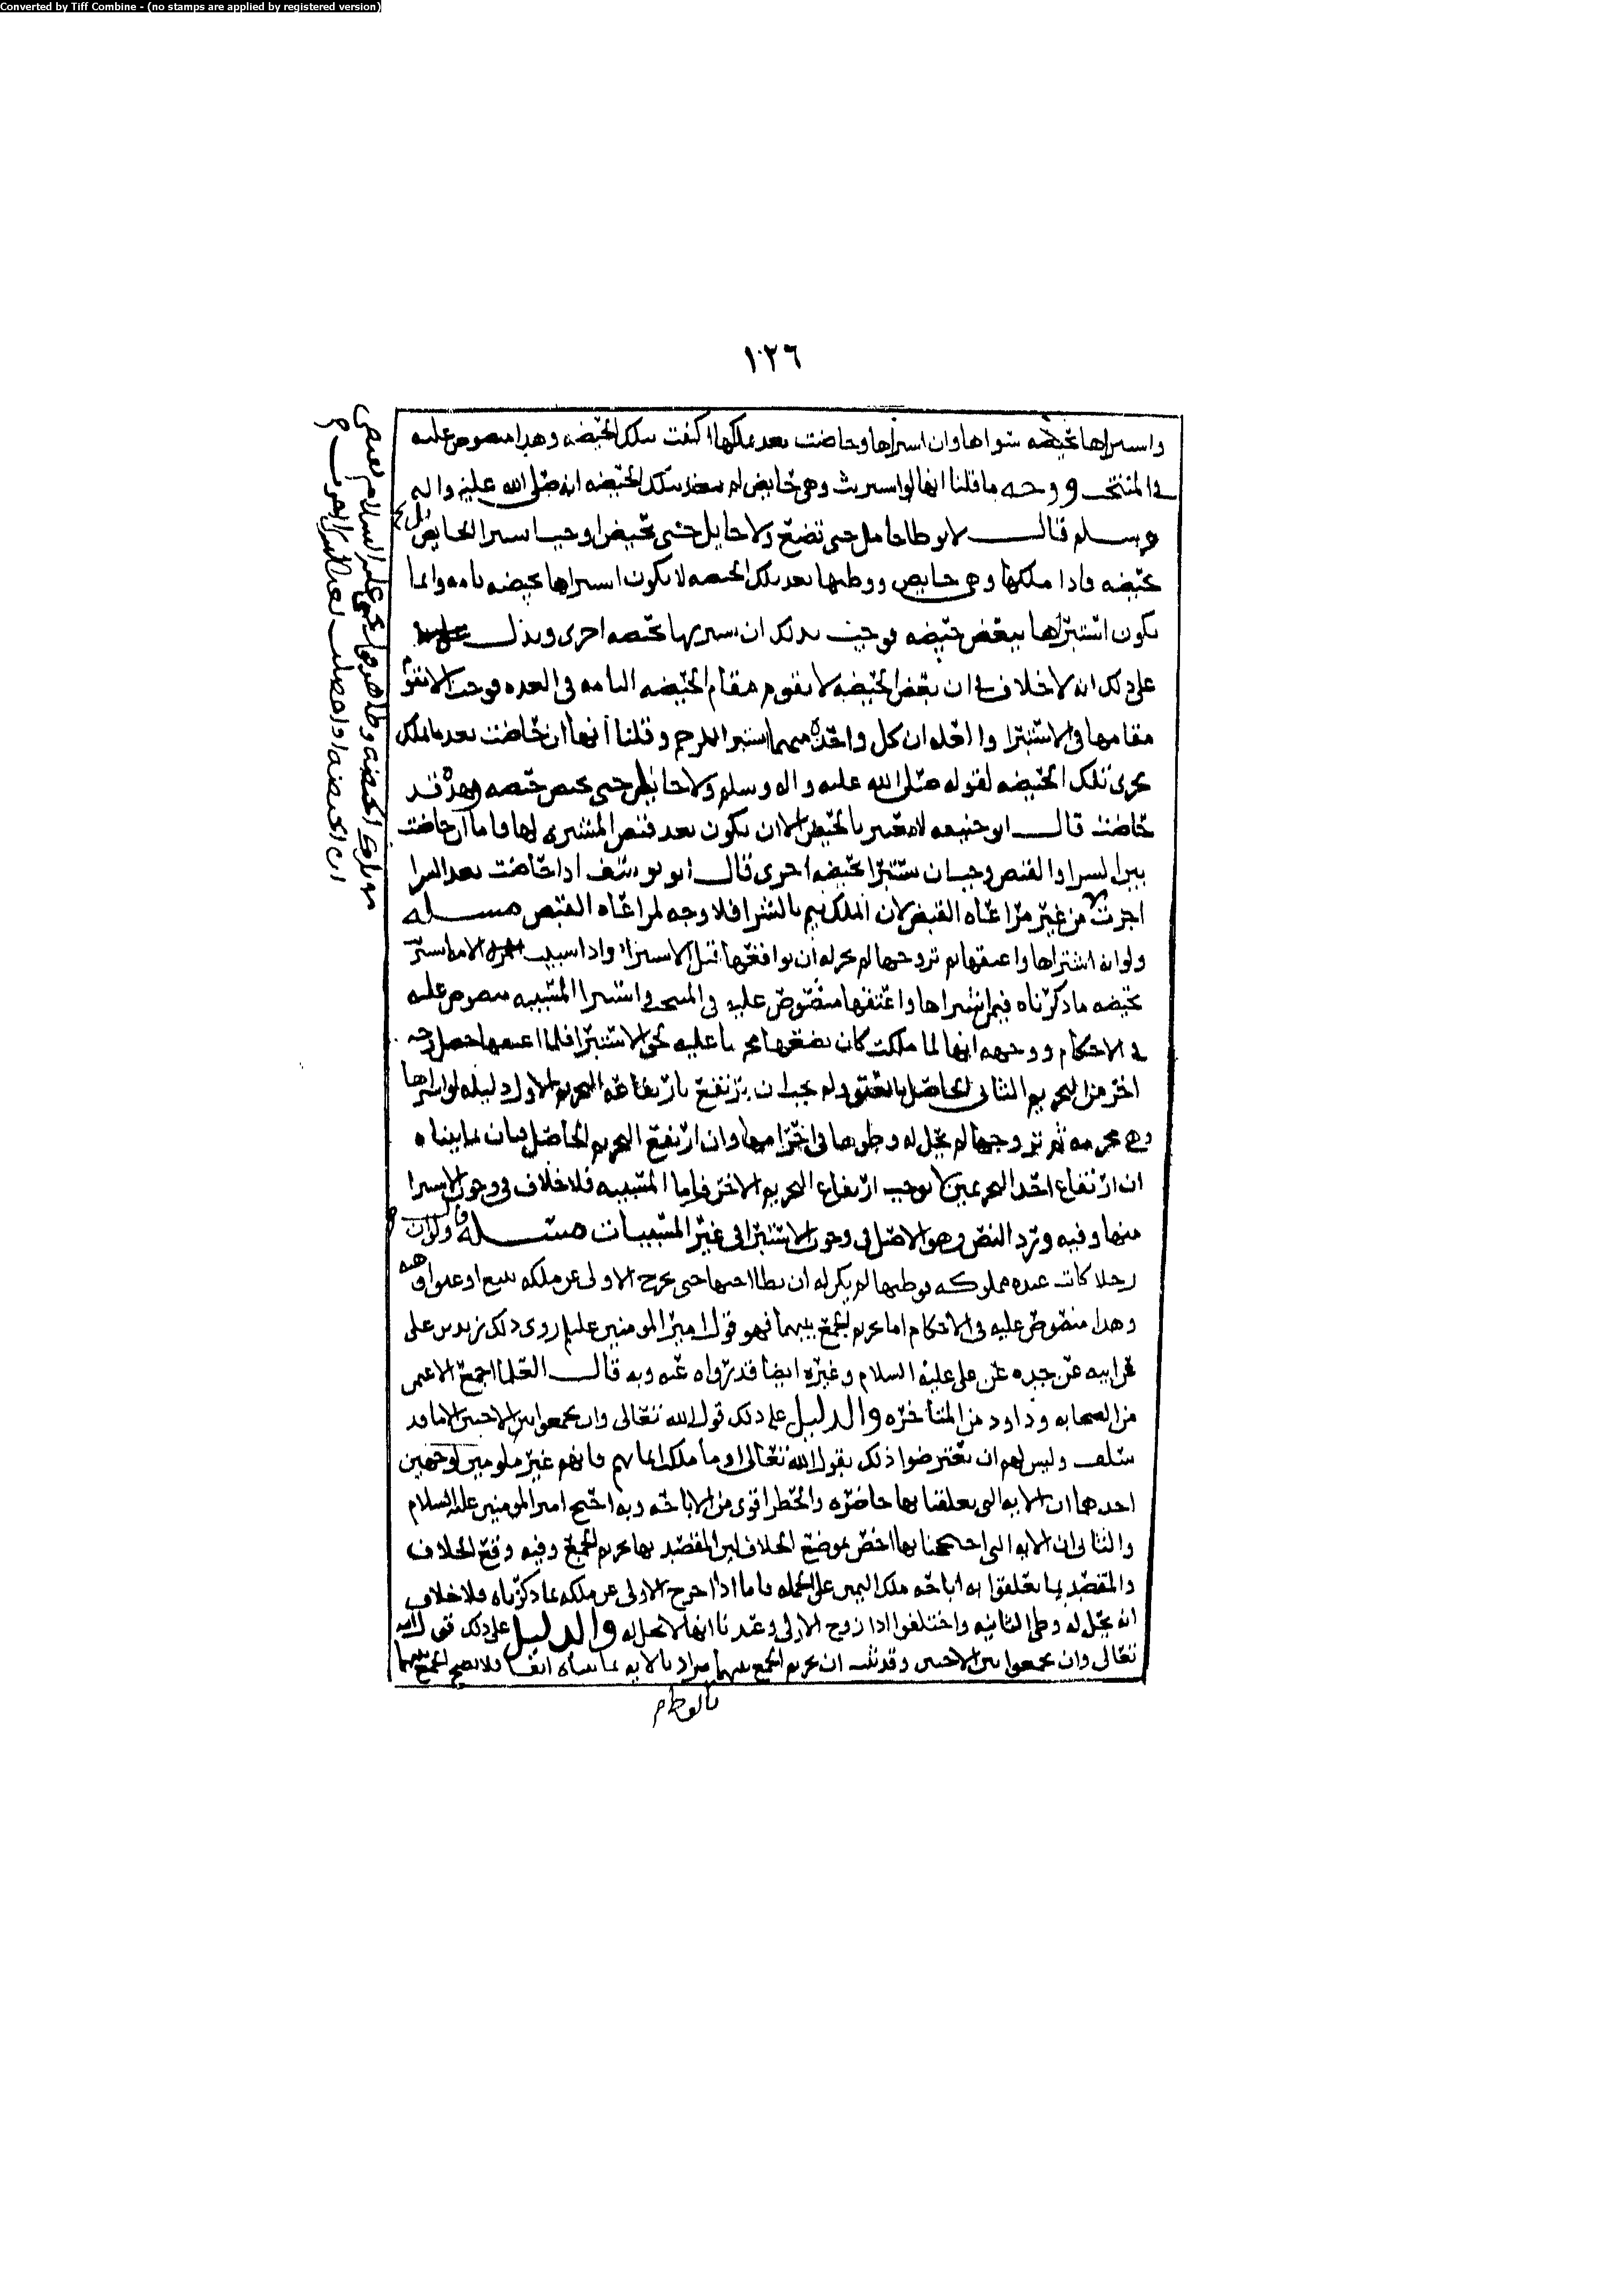 Converted by Tiff Combine - (no stamps are applied by registered version)
١٠٢٦
واستبراها بحيضه سواها وان استراها وحاضت بعد ملكها اكتفت بتلك الحيضه وهذا منصوص عليه
في المنتخب ووجه ما قلنا انها لو استريت وهي حايض لم يعتد بتلك الحيضه انه صلى الله عليه واله
وسلم قال لا توطا حامل حتى تضع ولا حايل حتى تحيض اوجب استبرا الحايل
بحيضه فاذا ملكها وهي حايض ووطيها بعد تلك الحيضه لا يكون استبراها بحيضه تامه وانما
يكون استبراها ببعض حيضه فوجب بذلك ان يستبريها بحيضه اخرى ويدل
على ذلك انه لا خلاف في ان بعض الحيضه لا يقوم مقام الحيضه التامه في العده فوجب الا تقوم
مقامها في الاستبرا والعله ان كل واحده منهما استبرا للرحم وقلنا انها ان حاضت بعد ما ملك
يجزي تلك الحيضه لقوله صلى الله عليه واله وسلم ولا حايل حتى تحيض حيضه وهذه قد
حاضت قال ابو حنيفه لا تعتبر بالحيض الا ان يكون بعد قبض المشتري لها فاما ان حاضت
بين الشرا والقبض وجب ان تستبرا بحيضه اخرى قال ابو يوسف اذا حاضت بعد الشرا
اجزت من غير مراعاه القبض لان الملك يتم بالشرا فلا وجه لمراعاه القبض مسله
ولو انه اشتراها واعتقها ثم تزوجها لم يجز له ان يواقعها قبل الاستبراء واذا سبيت الامه استبرت
بحيضه ما ذكرناه فيمن اشتراها واعتقها منصوص عليه في المنتخب واستبرا المسبيه منصوص عليه
في الاحكام ووجهه انها لما ملكت كان بضعها محرما عليه لحق الاستبرا فلما اعتقها حصل وجه
اخر من التحريم الثاني الحاصل بالعتق ولم يجب ان يرتفع بارتفاعه التحريم الاول دليله لو اشتراها
وهي محرمه ثم تزوجها لم يحل له وطوها في احرامها وان ارتفع التحريم الحاصل فبان بما بيناه
ان ارتفاع احد التحريمين لا يوجب ارتفاع التحريم الاخر فاما المسبيه فلا خلاف في وجوب الاستبرا
منها وفيه ورد النص وهو الاصل في وجوب الاستبرا في غير المسبيات مسله قال ولو ان
رجلا كانت عنده مملوكه يوطيها لم يكن له ان يطا اختها حتى يخرج الاولى عن ملكه ببيع او عتق او هبه
وهذا منصوص عليه في الاحكام اما تحريم الجمع بينهما فهو قول امير المومنين عليلم روى ذلك زيد بن علي
عن ابيه عن جده عن علي عليه السلام وغيره ايضا قد رواه عنه وبه قال العلما اجمع الا عن
من الصحابه وداود من المتاخره والدليل على ذلك قول الله تعالى وان تجمعوا بين الاختين الا ما قد
سلف وليس لهم ان يعترضوا ذلك بقول الله تعالى او ما ملكت ايمانهم فانهم غير ملومين لوجهين
احدهما ان الايه التي تعلقنا بها حاضره والحظر اقوى من الاباحه وبه احتج امير المومنين عليه السلام
والثاني ان الايه التي احتججنا بها اخص بموضع الخلاف لان المقصد بها تحريم الجمع وفيه وقع الخلاف
والمقصد بما تعلقوا به اباحه ملك اليمين على الجمله فاما اذا اخرج الاولى عن ملكه بما ذكرناه فلا خلاف
انه يحل له وطي الثانيه واختلفوا اذا زوج الاولى وعندنا انها لا تحل له والدليل على ذلك قول الله
تعالى وان تجمعوا بين الاختين وقد ثبت ان تحريم الجمع بينهما مراد بالايه بما بيناه انفا فلا يصح الجمع بينهما
بالوطء م